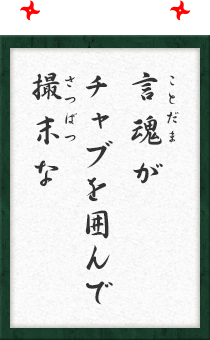 言魂が
チャブを囲んで
撮末な
ことだま
さつばつ